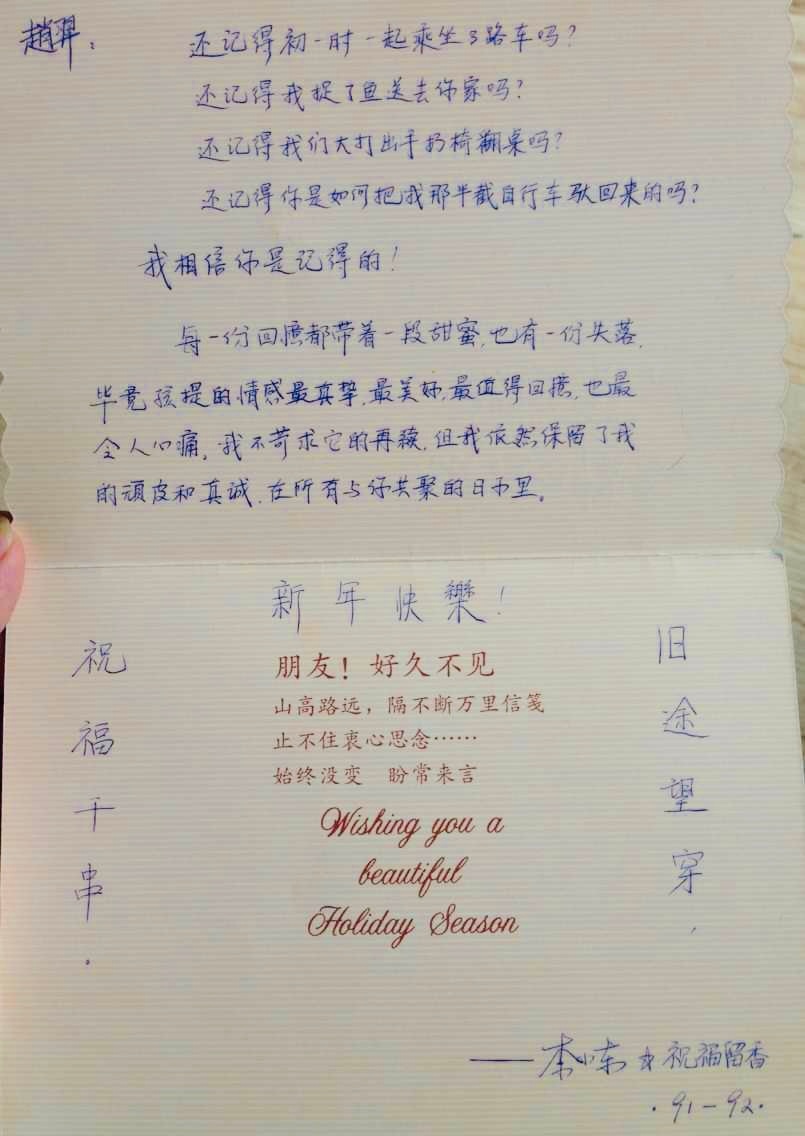 趙羿：
还记得初一时一起乘坐3路车吗？
还记得我捉了鱼送去你家吗？
还记得我们大打出手扔椅翻桌吗？
还记得你是如何把我那半截自行车驮回来的吗？
我相信你是记得的！
每一份回憶都带着一段甜蜜，也有一份失落，
毕竟孩提的情感最真挚，最美好，最值得回憶，也最
令人心痛，我不苛求它的再續，但我依然保留了我
的頑皮和真诚，在所有与你共聚的日子里。
新年快樂！
旧途望穿，
祝福千串．
朋友！好久不见
山高路远，隔不断万里信笺
止不住衷心思念……
始终没变 盼常来言
Wishing you a
beautiful
Holiday Season
——李小东 祝福留香
．91－92．